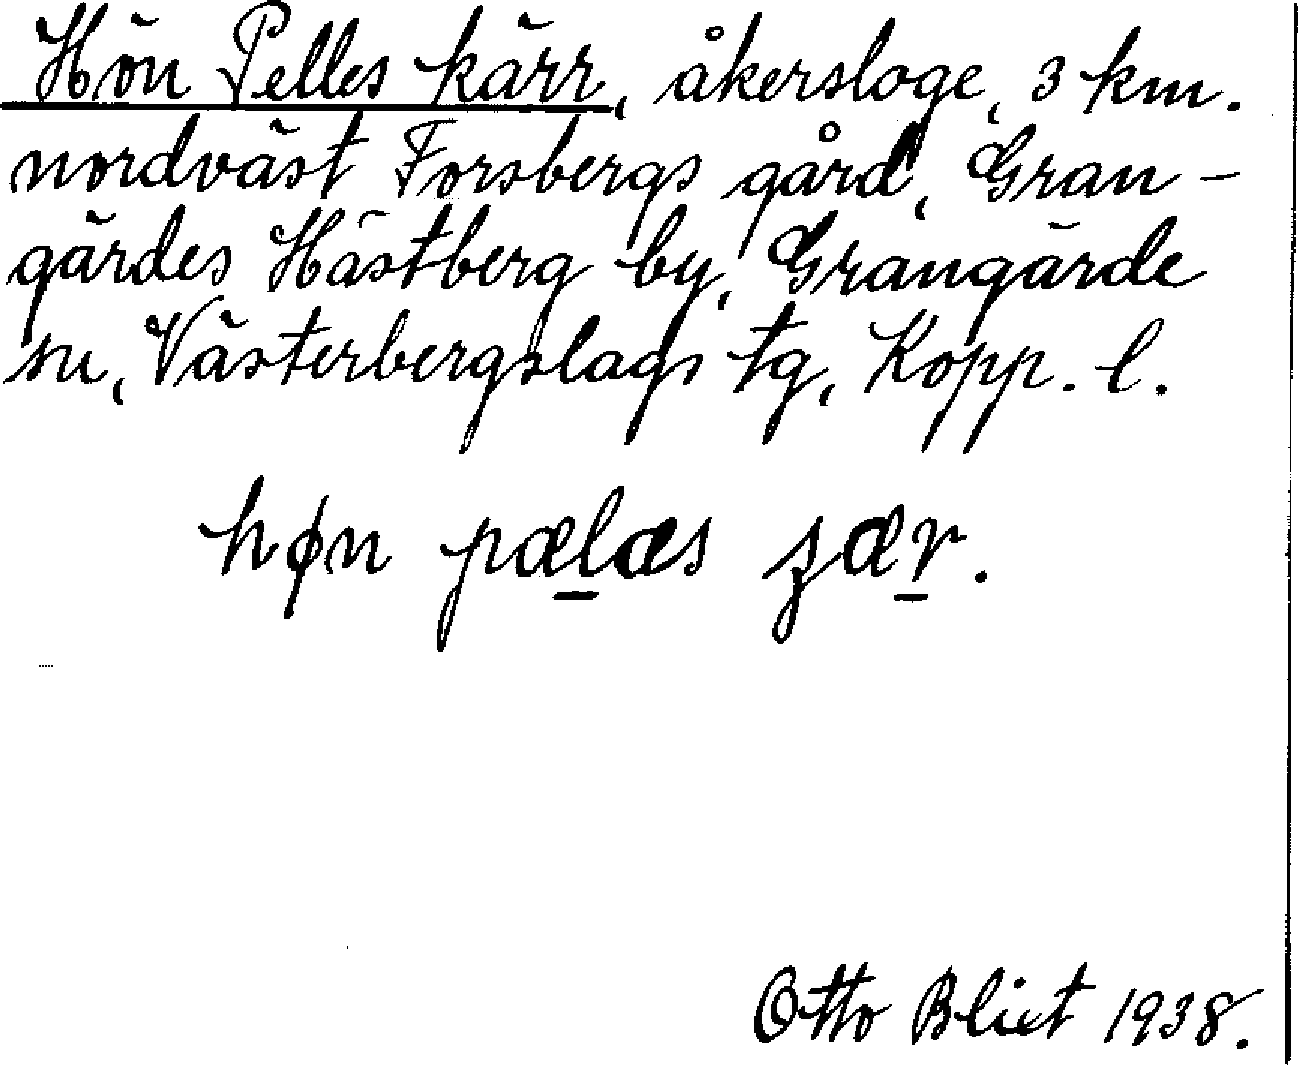 Hön Pelles kärr, åkersloge, 3 km.
nordväst Forsbergs gård, Gran-
gärdes Hästberg by, Grangärde
sn, Västerbergslags tg, Kopp. l.
høn pælæs sær.
Otto Blixt 1938.